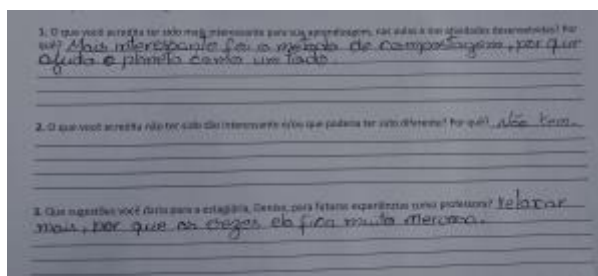 1. O que você acredita ter sido mais interessante para sua aprendizagem, nas aulas e nas atividades desenvolvidas? Por
quê? Mais interessante foi o metodo de compostagem, por que
ajuda o planeta como um todo.
2. O que você acredita não ter sido tão interessante e/ou que poderia ter sido diferente? Por quê? Não tem.
3. Que sugestões você daria para a estagiária, Denise, para futuras experiências como professora? relaxar
mais, por que as vezes ela fica muito